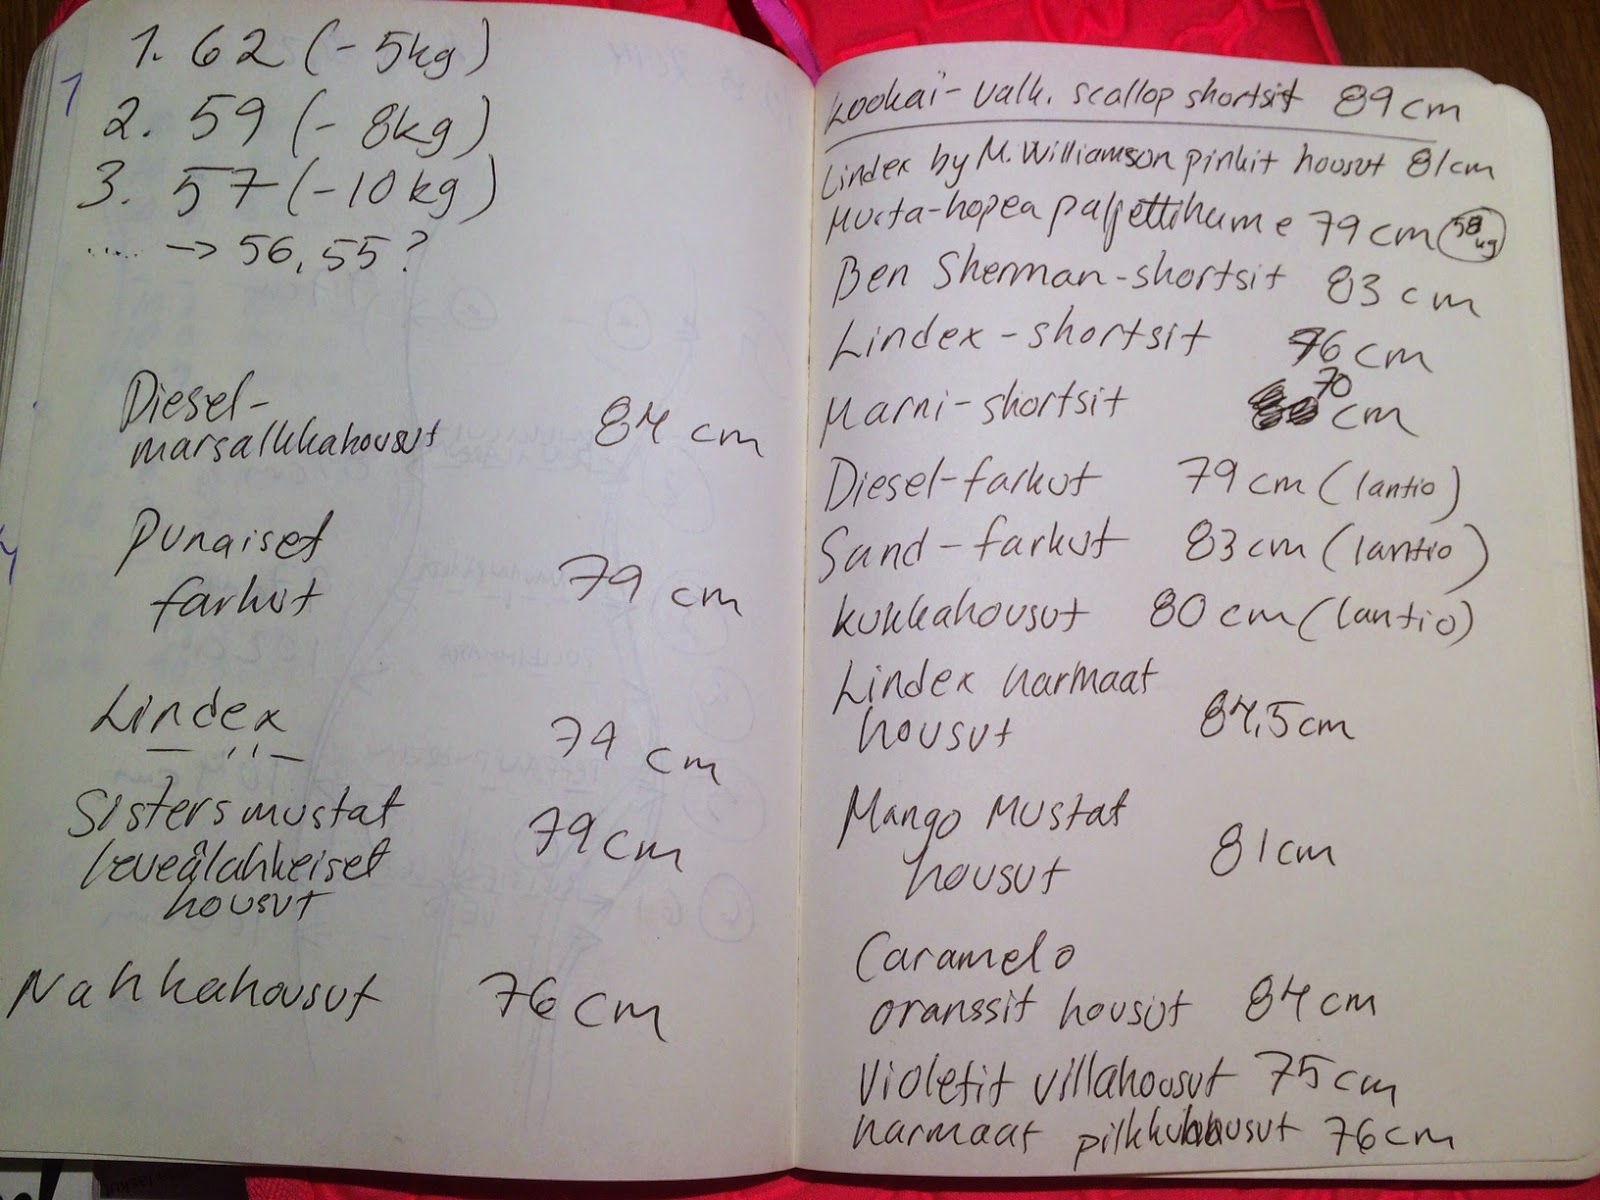 1. 62 (-5kg)
2. 59 (-8kg)
3. 57 (-10kg)
..... → 56, 55?
Diesel-
marsalkkahousut 84 cm
Punaiset
farkut 79 cm
Lindex 79 cm
— '' —
Sisters mustat
leveälahkeiset 79 cm
housut
Nahkahousut 76 cm
Kookaï - valk. scallop shortsit 89 cm
Lindex by M. Williamson pinkit housut 81 cm
Musta-hopea paljettihame 79 cm 58 kg
Ben Sherman-shortsit 83 cm
Lindex-shortsit 76 cm
Marni-shortsit 70 cm
Diesel-farkut 79 cm (lantio)
Sand-farkut 83 cm (lantio)
kukkahousut 80 cm (lantio)
Lindex harmaat
housut 84,5 cm
Mango mustat
housut 81 cm
Caramelo
oranssit housut 84 cm
Violetit villahousut 75 cm
harmaat pilkkuhousut 76 cm